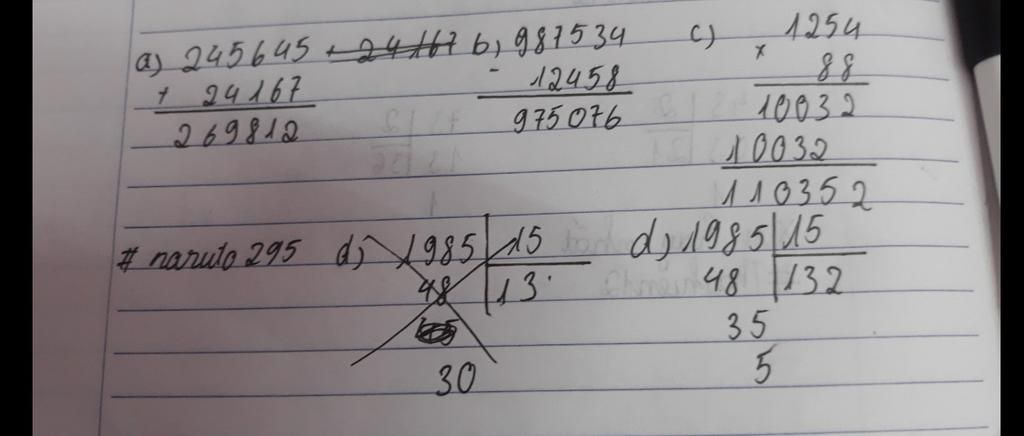 a) 245645 + 24167 b, 987534 c) 1254
+ 24167 - 12458 x 88
269812 975076 10032
10032
110352
# naruto295 d, 1985 15 d, 1985 15
48 13 48 132
35
30 5